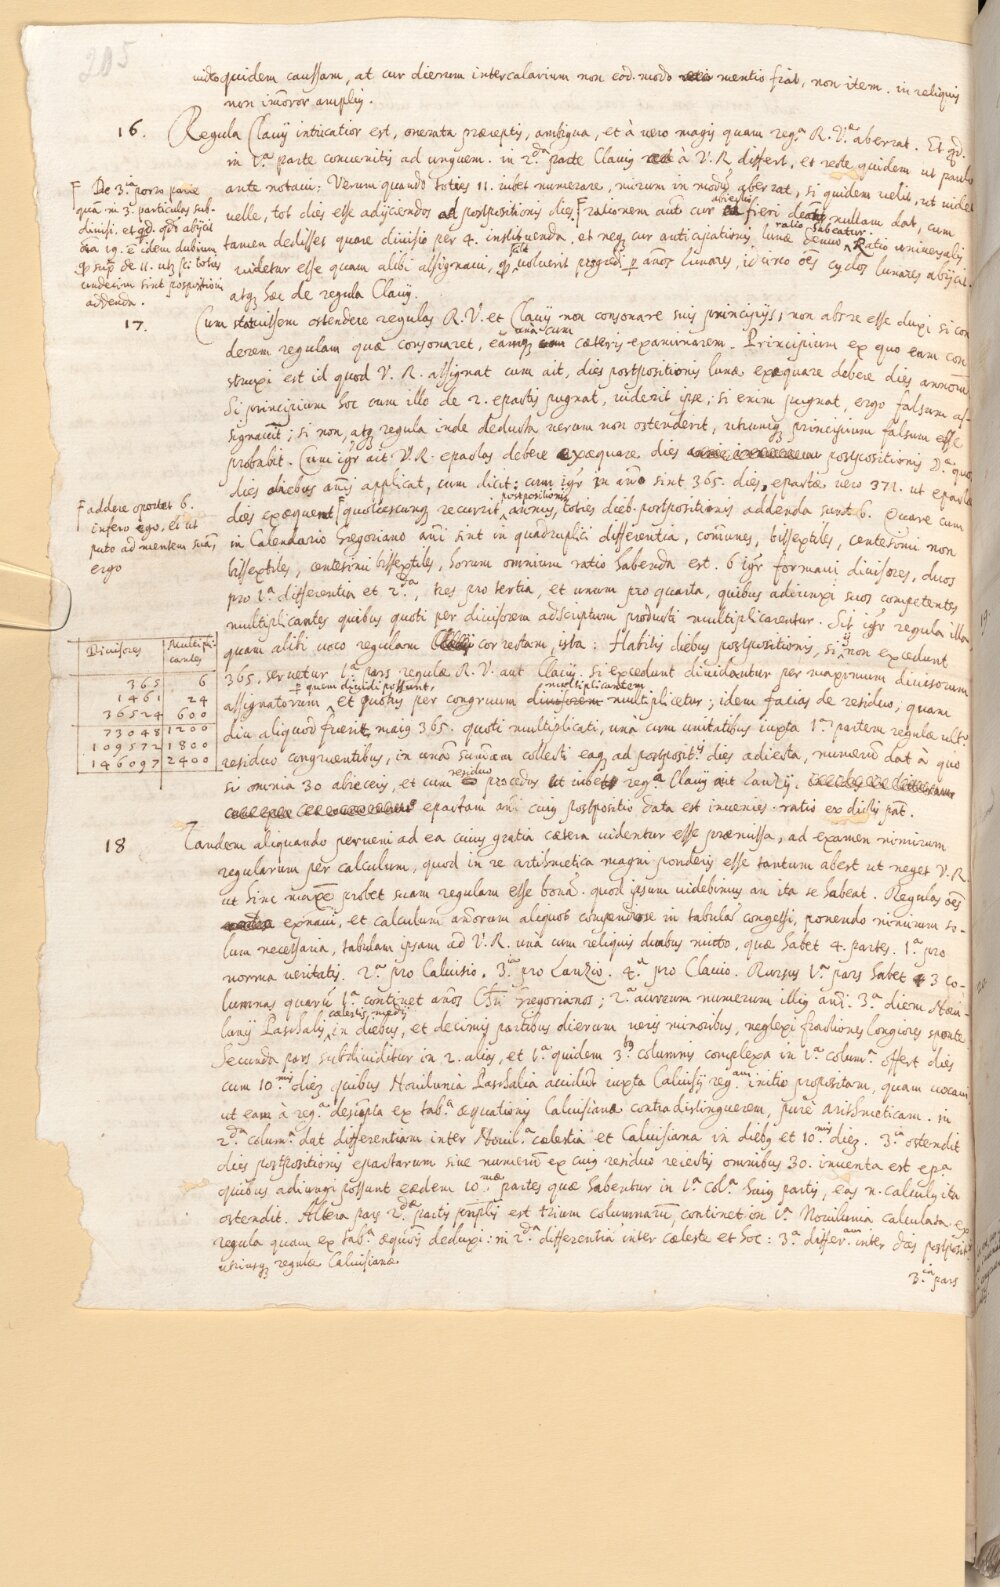 205
quidem caussam, at cur dierum intercalarium non eod. modo mentio fiat, non item. in reliquis
non im̄oror amplius.
16. Regula Clavij intricatior est, onerata præceptis, ambigua, et à vero magis quam reg.ª R. V.ª aberrat. Et qd.
in 1.ª parte convenitis ad unguem. in 2.da parte Clavius à V. R. differt, et recte quidem ut paulo
ante notavi; Verum quando toties 11. iubet numerare, mirum in modū aberrat, si quidem velit, ut videt
velle, tot dies esse adijciendos ad postpositionis dies F rationem aut cur abiectus fieri nullam dat, cum
tamen dedisset quare divisio per 4. instituenda, et neq cur anticipationis lunæ denuo ratio habeatur. Ratio universalis
videtur esse quam alibi assignavi, voluerit progredi p annos lunares, idcirco oēs cyclos lunares abijcit.
atq hæc de regula Clavij.
F De 3.ia porro parte
quā in 3. particulas sub-
divisi. et qd. abijcit
oīa 19. ē idem dubium
sup. de 11. utz sci toties
undecim sint postpositioni
addenda.
17. Cum statuissem ostendere regulas R. V. et Clavij non consonare suis principijs, non abs re esse duxi si con
derem regulam quæ consonaret, eamq una cum cæteris examinarem. Principium ex quo eam con
struxi est id quod V. R. assignat cum ait, dies postpositionis lunæ exæquare debere dies annorū
Si principium hoc cum illo de 2. epactis pugnat, viderit ipse; si enim pugnat, ergo falsum as-
signavit; si non, atq regula inde deducta verum non ostenderit, utrumq principium falsum esse
probabit. Cum igr ait V. R. epactas debere exæquare dies postpositionis
dies diebus anni applicat, cum dicit: cum igr in año sint 365. dies, epactæ vero 371. ut epactæ
dies exæquent F quotiescunq recurrit postpositionis annus, toties dieb. postpositionis addenda sunt 6. Quare cum
in Calendario Gregoriano anni sint in quadruplici differentia, com̄unes, bissextiles, centesimi non
bissextiles, centesimi bissextiles, horum omnium ratio habenda est. 6 igr formavi divisores, duos
pro 1.ª differentia et 2.da, tres pro tertia, et unum pro quarta, quibus adiunxi suos competentes
multiplicantes quibus quoti per divisorem adscriptum producti multiplicarentur. Sit igr regula illa
quam alibi voco regulam correctam, ista: Habitis diebus postpositionis, si non excedunt
365. servetur 1.ª pars regulæ R. V. aut Clavij. si excedunt dividantur per maximum divisorum
assignatorum p quem dividi possunt, et quotus per congruum multiplicantem multiplicetur; idem facias de residuo, quam
diu aliquod fuerit maius 365. quoti multiplicati, una cum unitatibus iuxta 1.m partem regulæ ult.º
residuo congruentibus, in unā sum̄am collecti eaq ad postpositis dies adiecta, numerū dat à quo
si omnia 30 abieceris, et cum residuo procedas ut iubet reg.ª Clavij aut Lanzij,
epactam anni cuius postpositio data est invenies. ratio ex dictis pat.
F addere oportet 6.
infero ego, ei ut
puto ad mentem suā,
ergo
Divisores Multipli-
cantes
365 6
1461 24
36524 600
73048 1200
109572 1800
146097 2400
18 Tandem aliquando perveni ad ea cuius gratia cætera videntur esse præmissa, ad examen nimirum
regularum per calculum, quod in re arithmetica magni ponderis esse tantum abest ut neget V. R.
ut hinc maxe probet suam regulam esse bonā. quod ipsum videbimus an ita se habeat. Regulas oēs
exam̄avi, et calculum annorum aliquot compendiose in tabulā congessi, ponendo nimirum so-
lum necessaria, tabulam ipsam ad V. R. unà cum reliquis duabus mitto, quæ habet 4. partes. 1.ª pro
norma veritatis. 2.ª pro Calvisio. 3.ia pro Lanzio. 4.ª pro Clavio. Rursus 1.ª pars habet 3 co-
lumnas quarū 1.ª continet años Chri Gregorianos; 2.ª aureum numerum illius anni. 3.ª diem Novi-
lunij Paschalis cælestis medij in diebus, et decimis partibus dierum veris minoribus, neglexi fractiones longiores sponte.
Secunda pars subdividitur in 2. alias, et 1.ª quidem 3.bus columnis complexa in 1.ª colum.ª offert dies
cum 10.mis diei quibus Novilunia Paschalia accidūt iuxta Calvisij reg.am initio propositam, quam vocavi
ut eam à reg.ª desūpta ex tab.ª æquationis Calvisianæ contradistinguerem, purè arithmeticam. in
2.da colum.ª dat differentiam inter Novil.ª cælestia et Calvisiana in dieb9 et 10.mis diei. 3.ia ostendit
dies postpositionis epactarum sive numerū ex cuius residuo reiectis omnibus 30. inventa est ep.ª
quibus adiungi possunt eædem 10.mæ partes quæ habentur in 1.ª col.ª huius partis, eas n. calculus ita
ostendit. Altera pars 2.dæ partis principalis est trium columnarū, continet in 1.ª Novilunia calculata ex
regula quam ex tab.ª æquōis deduxi: in 2.da differentiā inter cæleste et hoc: 3.ª differ.am inter dies postposit.
utriusq regulæ Calvisianæ
3.ia pars